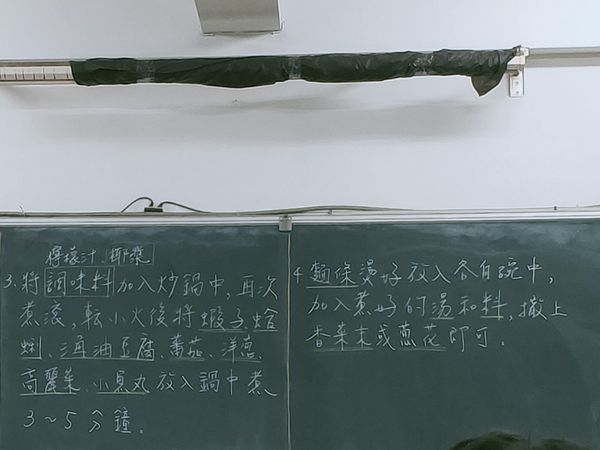 檸檬汁、椰漿
3.將調味料加入炒鍋中,再次
煮滾,轉小火後將蝦子、蛤
蜊、海油豆腐、蕃茄、洋蔥、
高麗菜、小魚丸放入鍋中煮
3~5分鐘。
4.麵條燙好放入各自碗中,
加入煮好的湯和料,撒上
香菜末或蔥花即可。